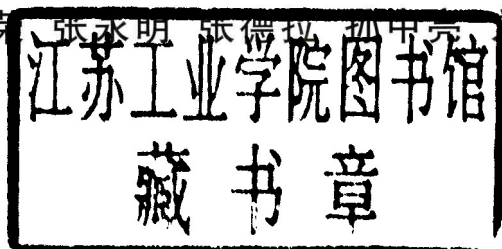 张永明 张德拉 孙中亮
江苏工业学院图书馆
藏书章